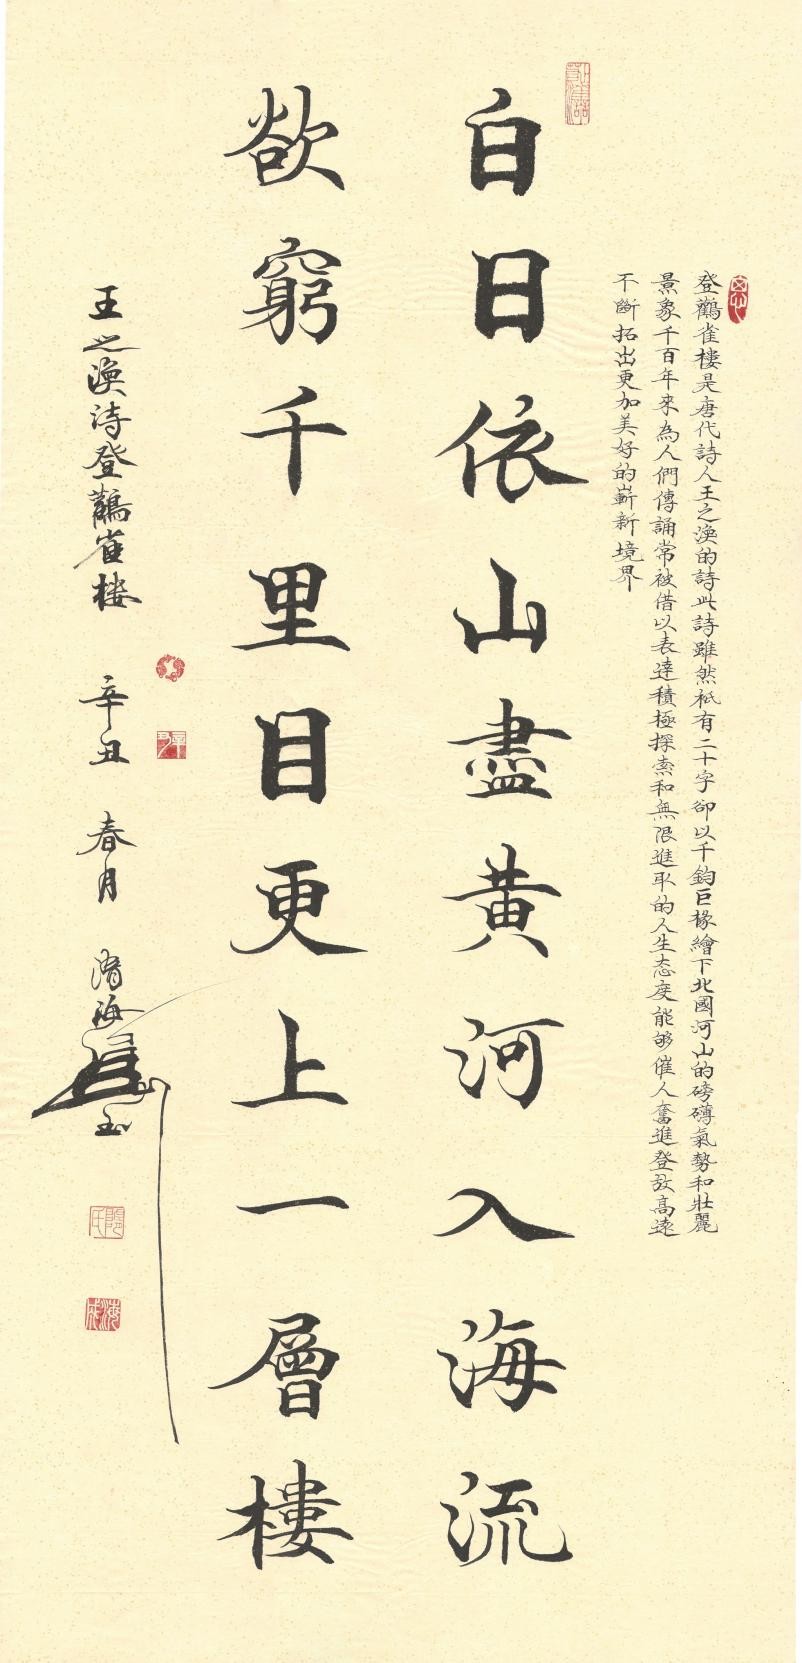 登鸛雀樓是唐代詩人王之渙的詩此詩雖然衹有二十字卻以千鈞巨椽繪下北國河山的磅礴氣勢和壯麗
景象千百年來為人們傳誦常被借以表達積極探索和無限進取的人生态度能够催人奮進登放高遠
不斷拓出更加美好的嶄新境界
白日依山盡黃河入海流
欲窮千里目更上一層樓
王之渙诗登鸛雀楼
辛丑 春月 渚海